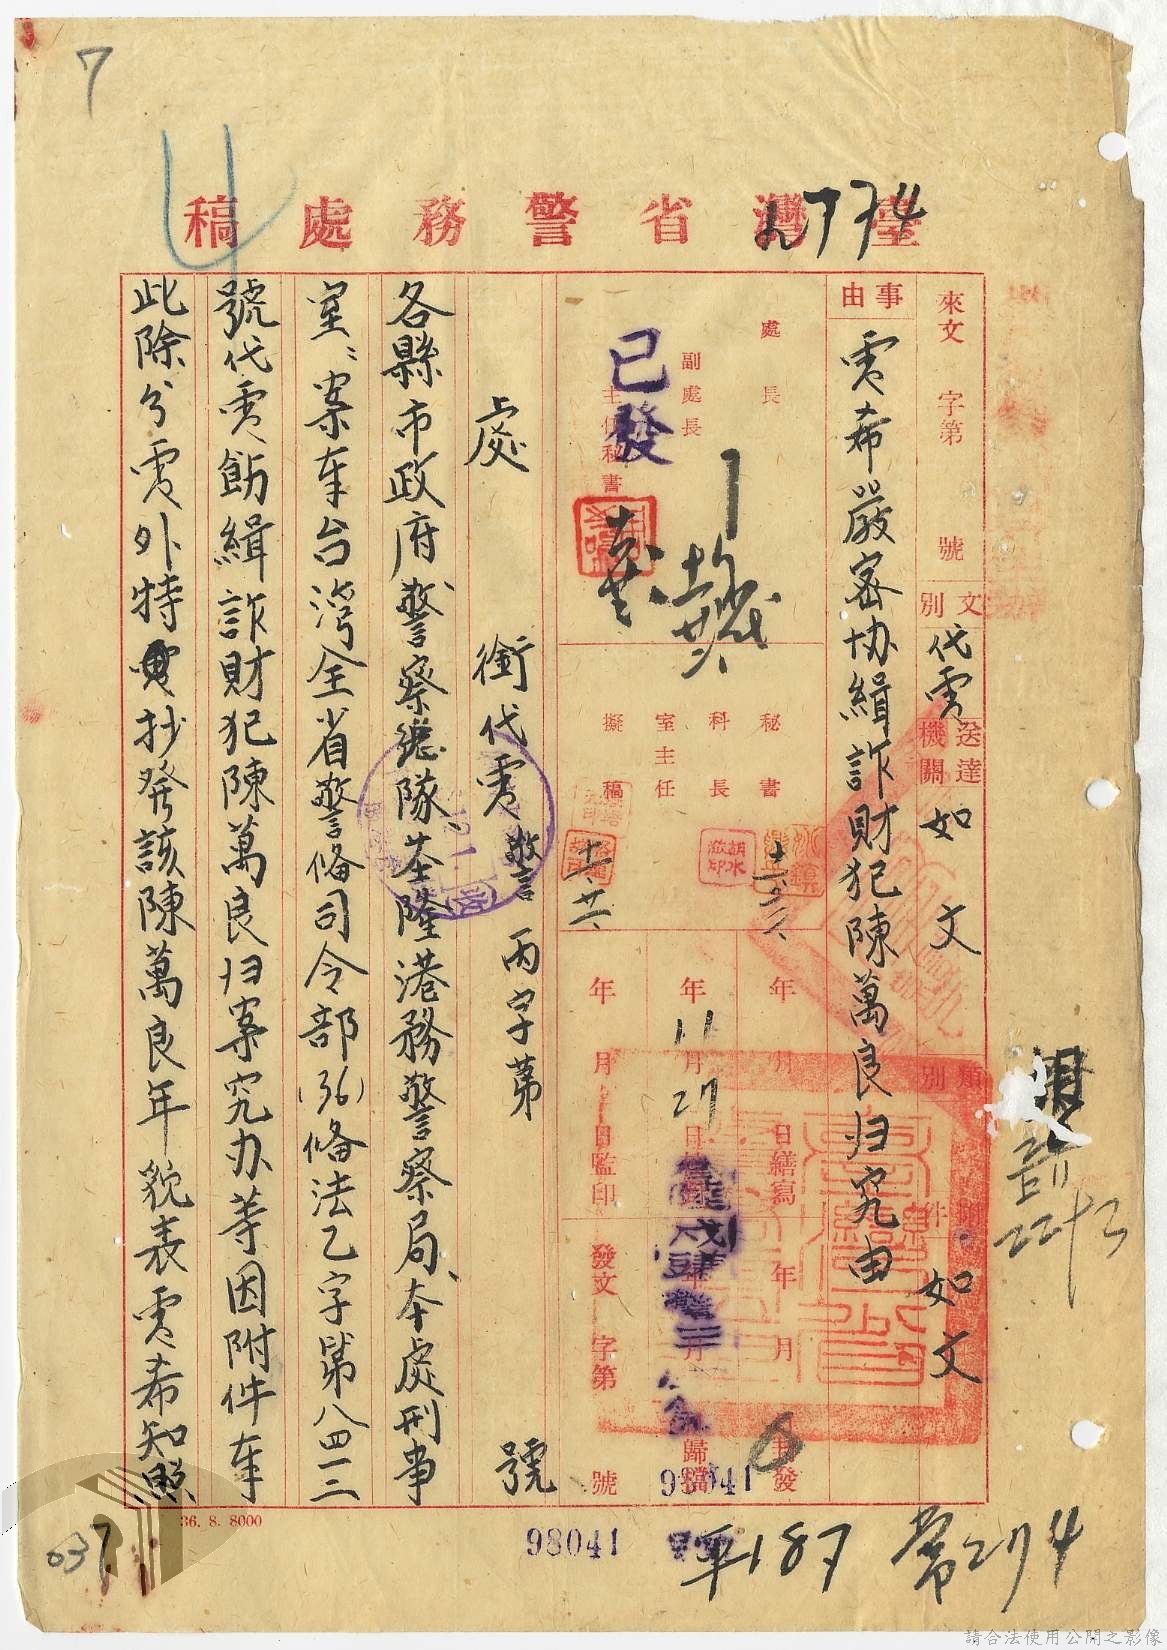 7
4
臺灣省警務處稿
774
來文 字第 號
文別 代電
送達機關 如文
類別
件 如文
事由
電希嚴密协緝詐財犯陳萬良归究由
處長
副處長
主任秘書
已發
秘書
科長
室主任
擬稿
年 月 日繕寫
年 11月 27日
年 月 日監印
年 月
封發
歸檔
發文 字第 號
98041
處 銜代電 警丙字第 號
各縣市政府警察總隊、基隆港務警察局、本處刑事
室：案奉台灣全省警偹司令部(36)偹法乙字第八四一三
號代電飭緝詐財犯陳萬良归案究办等因附件奉
此除分電外特電抄發該陳萬良年貌表電希知照
36. 8. 8000
98041
037
187
274
請合法使用公開之影像